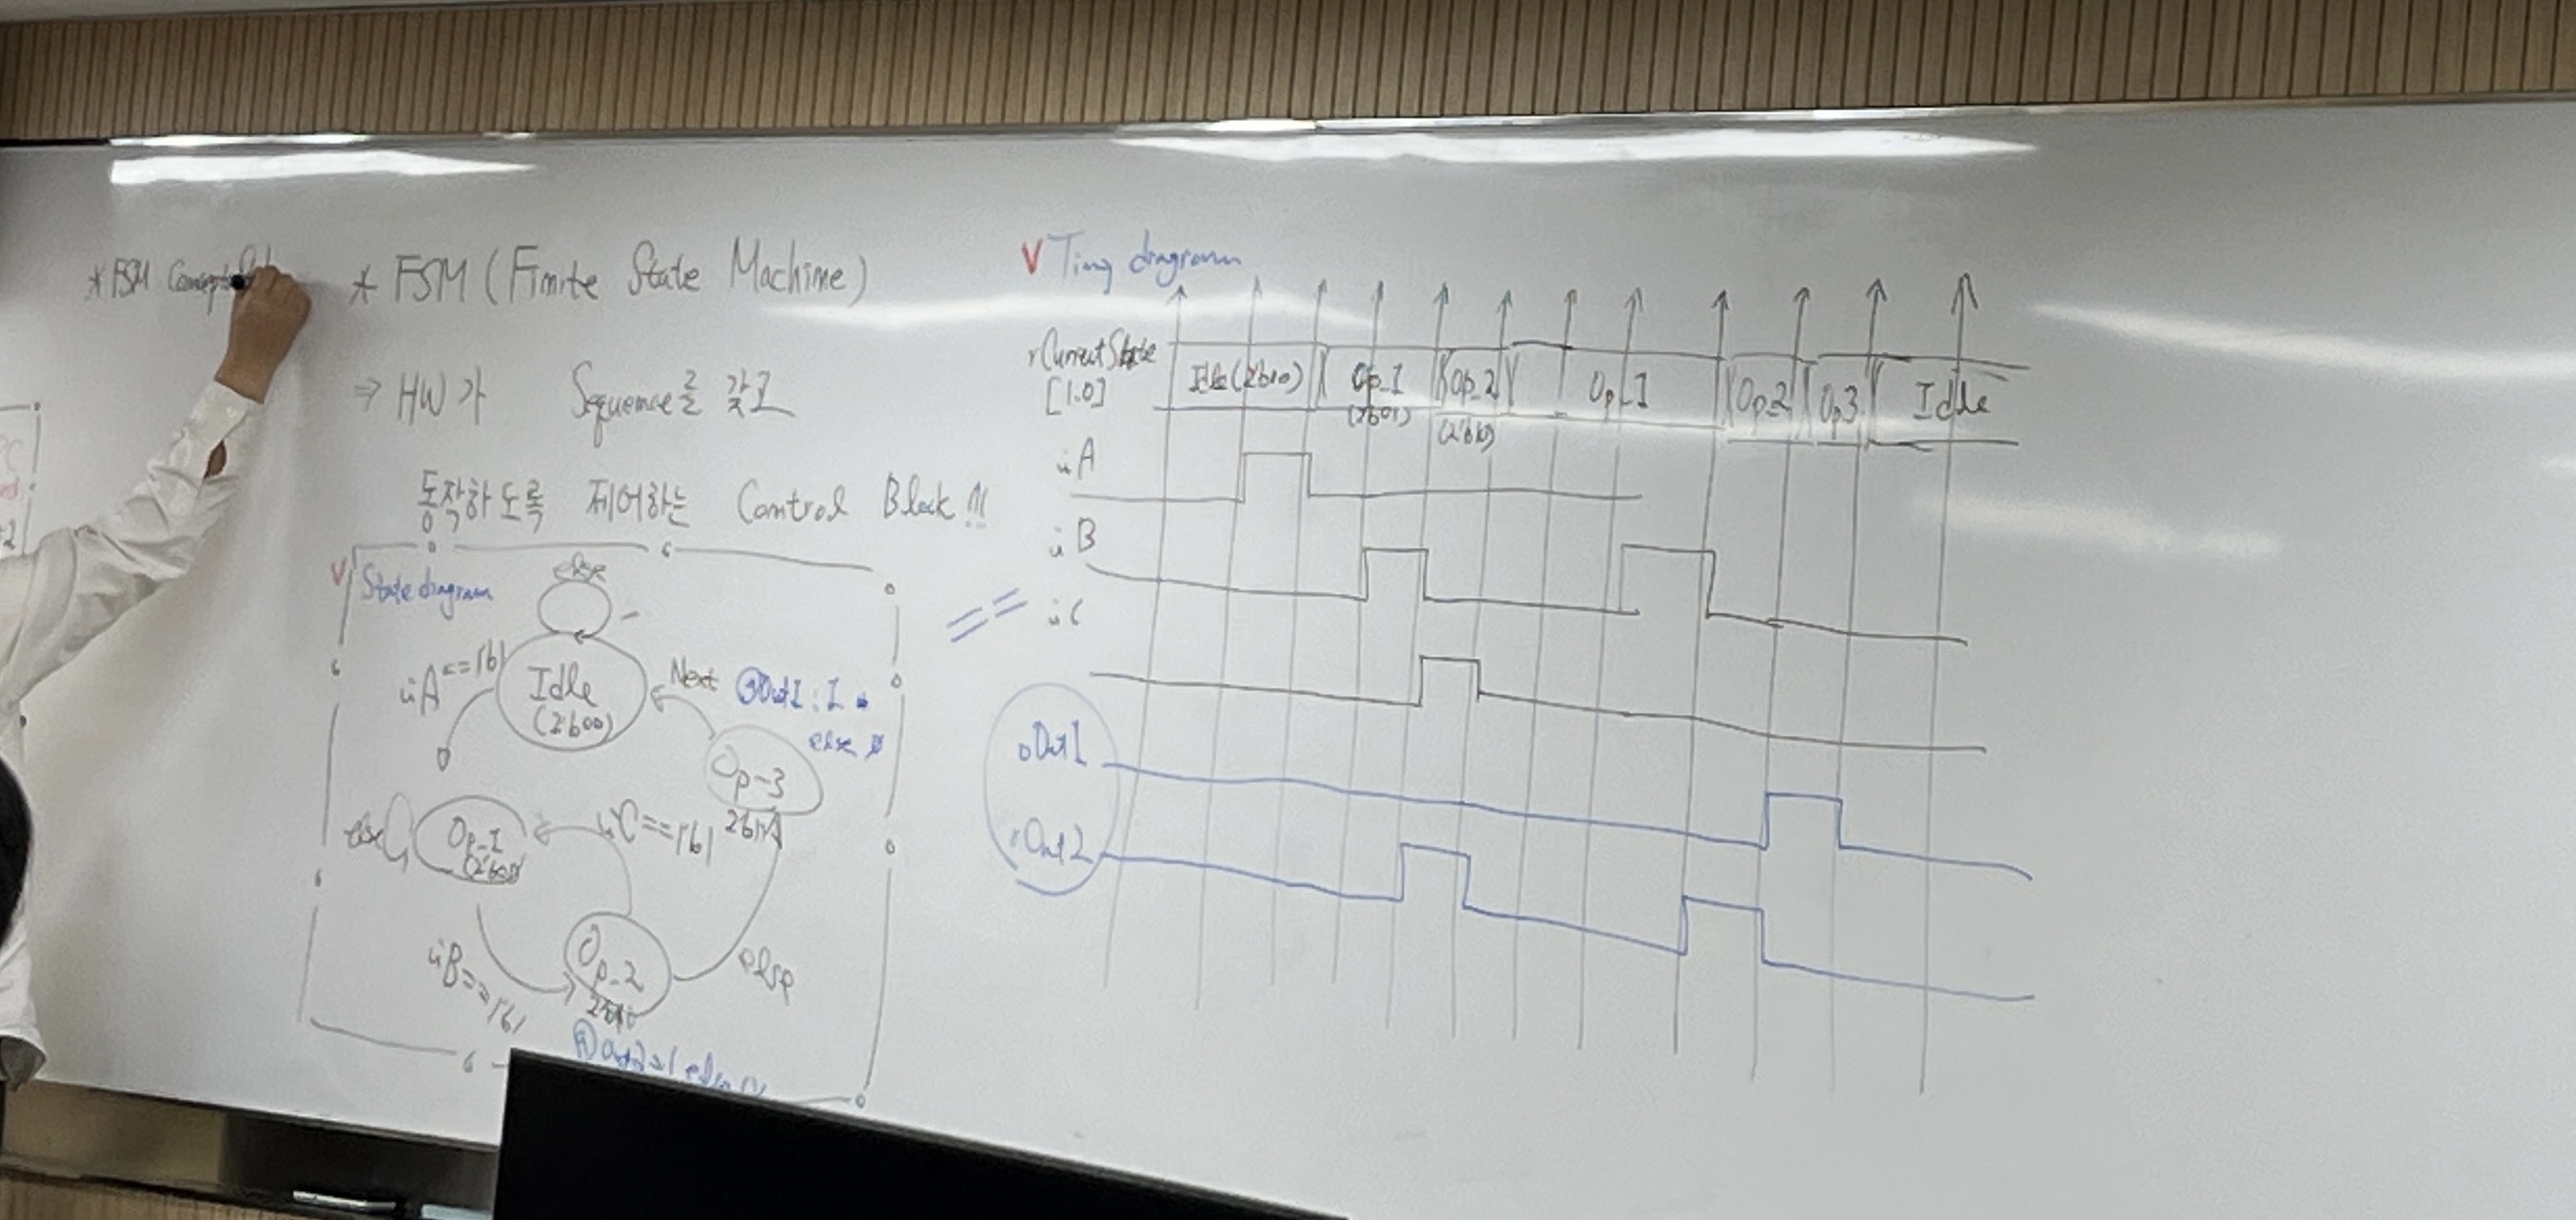 * FSM
* FSM (Finite State Machine)
⇒ HW가 Sequence를 갖고
동작하도록 제어하는 Control Block !!!
V State diagram
else
iA == 1b1
Idle
(2'b00)
Next
oOut1 : 1
else 0
Op-3
else
Op-1
iC == 1b1
iB == 1b1
Op-2
else
V Timg diagram
rCurrentState
[1:0]
Idle
Op-1
(2b01)
Op-2
(2'b10)
Op-1
Op-2
Op3
Idle
iA
iB
iC
oOut1
oOut2